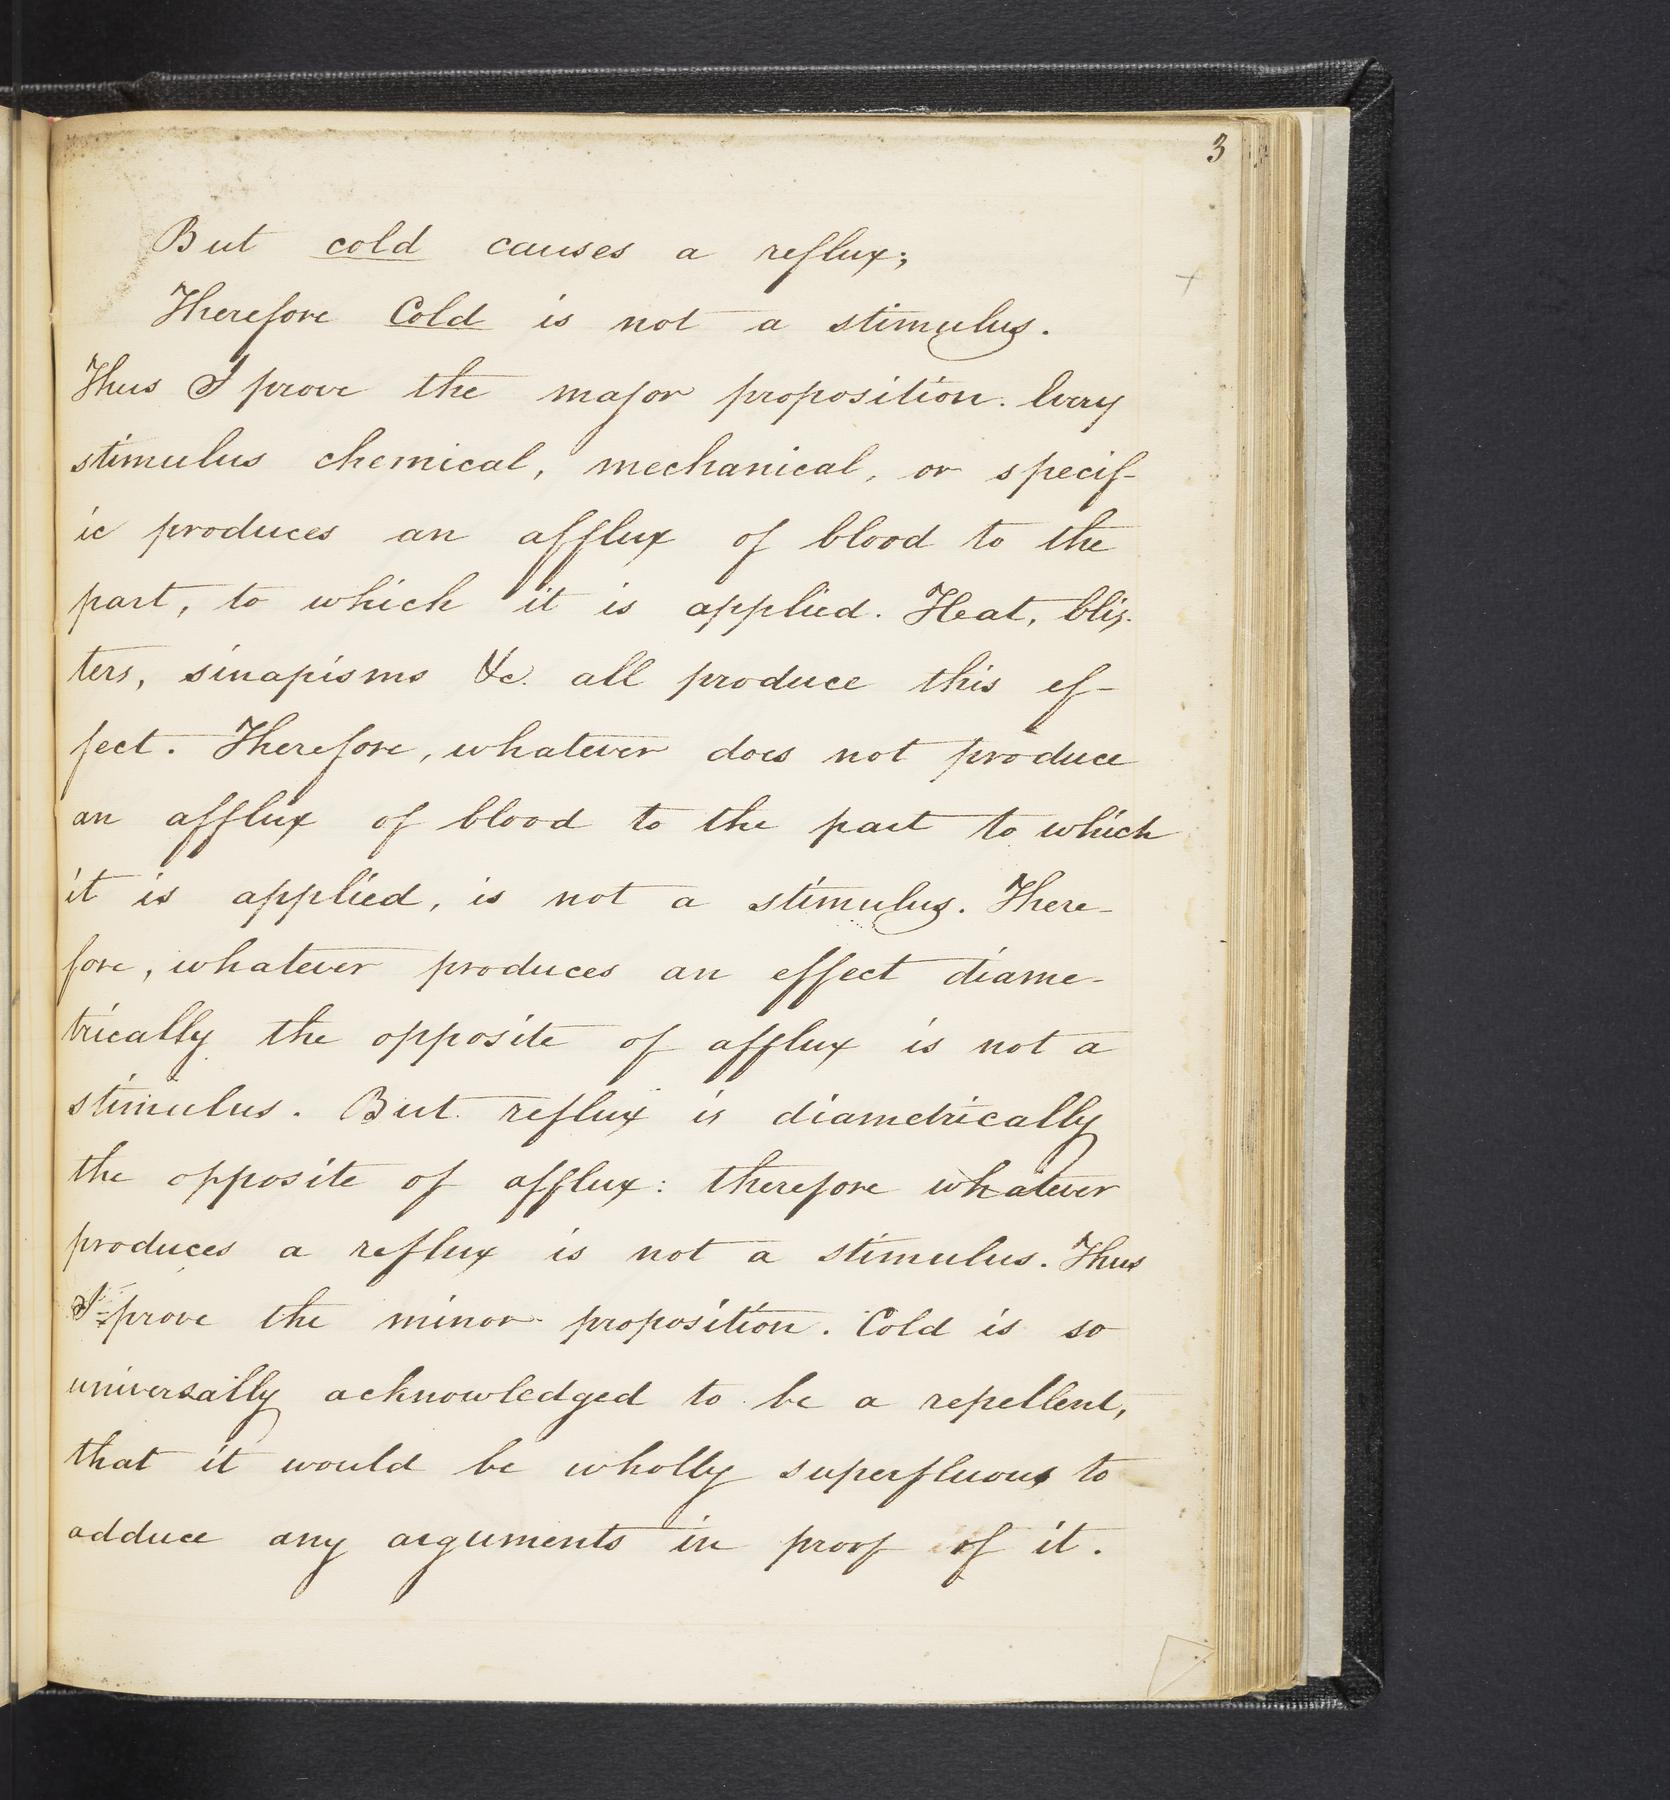 3
But cold causes a reflux;
Therefore Cold is not a stimulus.
Thus I prove the major proposition. Every
stimulus chemical, mechanical, or specif-
ic produces an afflux of blood to the
part, to which it is applied. Heat, blis-
ters, sinapisms &c. all produce this ef-
fect. Therefore, whatever does not produce
an afflux of blood to the part to which
it is applied, is not a stimulus. There-
fore, whatever produces an effect diame-
trically the opposite of afflux is not a
stimulus. But reflux is diametrically
the opposite of afflux: therefore whatever
produces a reflux is not a stimulus. Thus
I prove the minor proposition. Cold is so
universally acknowledged to be a repellent,
that it would be wholly superfluous to
adduce any arguments in proof of it.